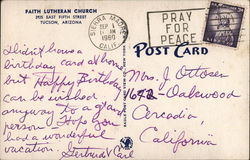 FAITH LUTHERAN CHURCH
2915 EAST FIFTH STREET
TUCSON, ARIZONA
SIERRA MADRE
SEP 1
AM
1960
CALIF.
PRAY
FOR
PEACE
POST CARD
Didn't have a
birthday card at hom
but Happy Birthday
can be wished
anyway to a
person. Hope you
had a wonderful
vacation.
Gertrud & Carl
Mrs. J. Ottosen
1672 - Oakwood
Arcadia,
California